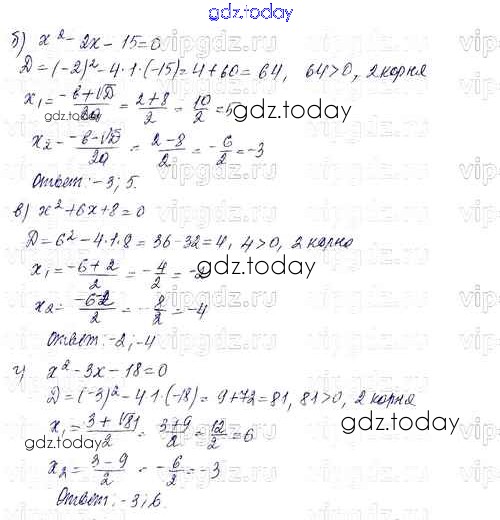 gdz.today
б) x² - 2x - 15 = 0
D = (-2)² - 4·1·(-15) = 4 + 60 = 64, 64 > 0, 2 корня
x₁ = (-b + √D)/2a = (2 + 8)/2 = 10/2 = 5
gdz.today
x₂ = (-b - √D)/2a = (2 - 8)/2 = -6/2 = -3
Ответ: -3; 5.
в) x² + 6x + 8 = 0
D = 6² - 4·1·8 = 36 - 32 = 4, 4 > 0, 2 корня
x₁ = (-6 + 2)/2 = -4/2 = -2
gdz.today
x₂ = (-6-2)/2 = -8/2 = -4
Ответ: -2; -4
г) x² - 3x - 18 = 0
D = (-3)² - 4·1·(-18) = 9 + 72 = 81, 81 > 0, 2 корня
x₁ = (3 + √81)/2 = (3 + 9)/2 = 12/2 = 6
gdz.today
x₂ = (3 - 9)/2 = -6/2 = -3
Ответ: -3; 6.
vipgdz.ru